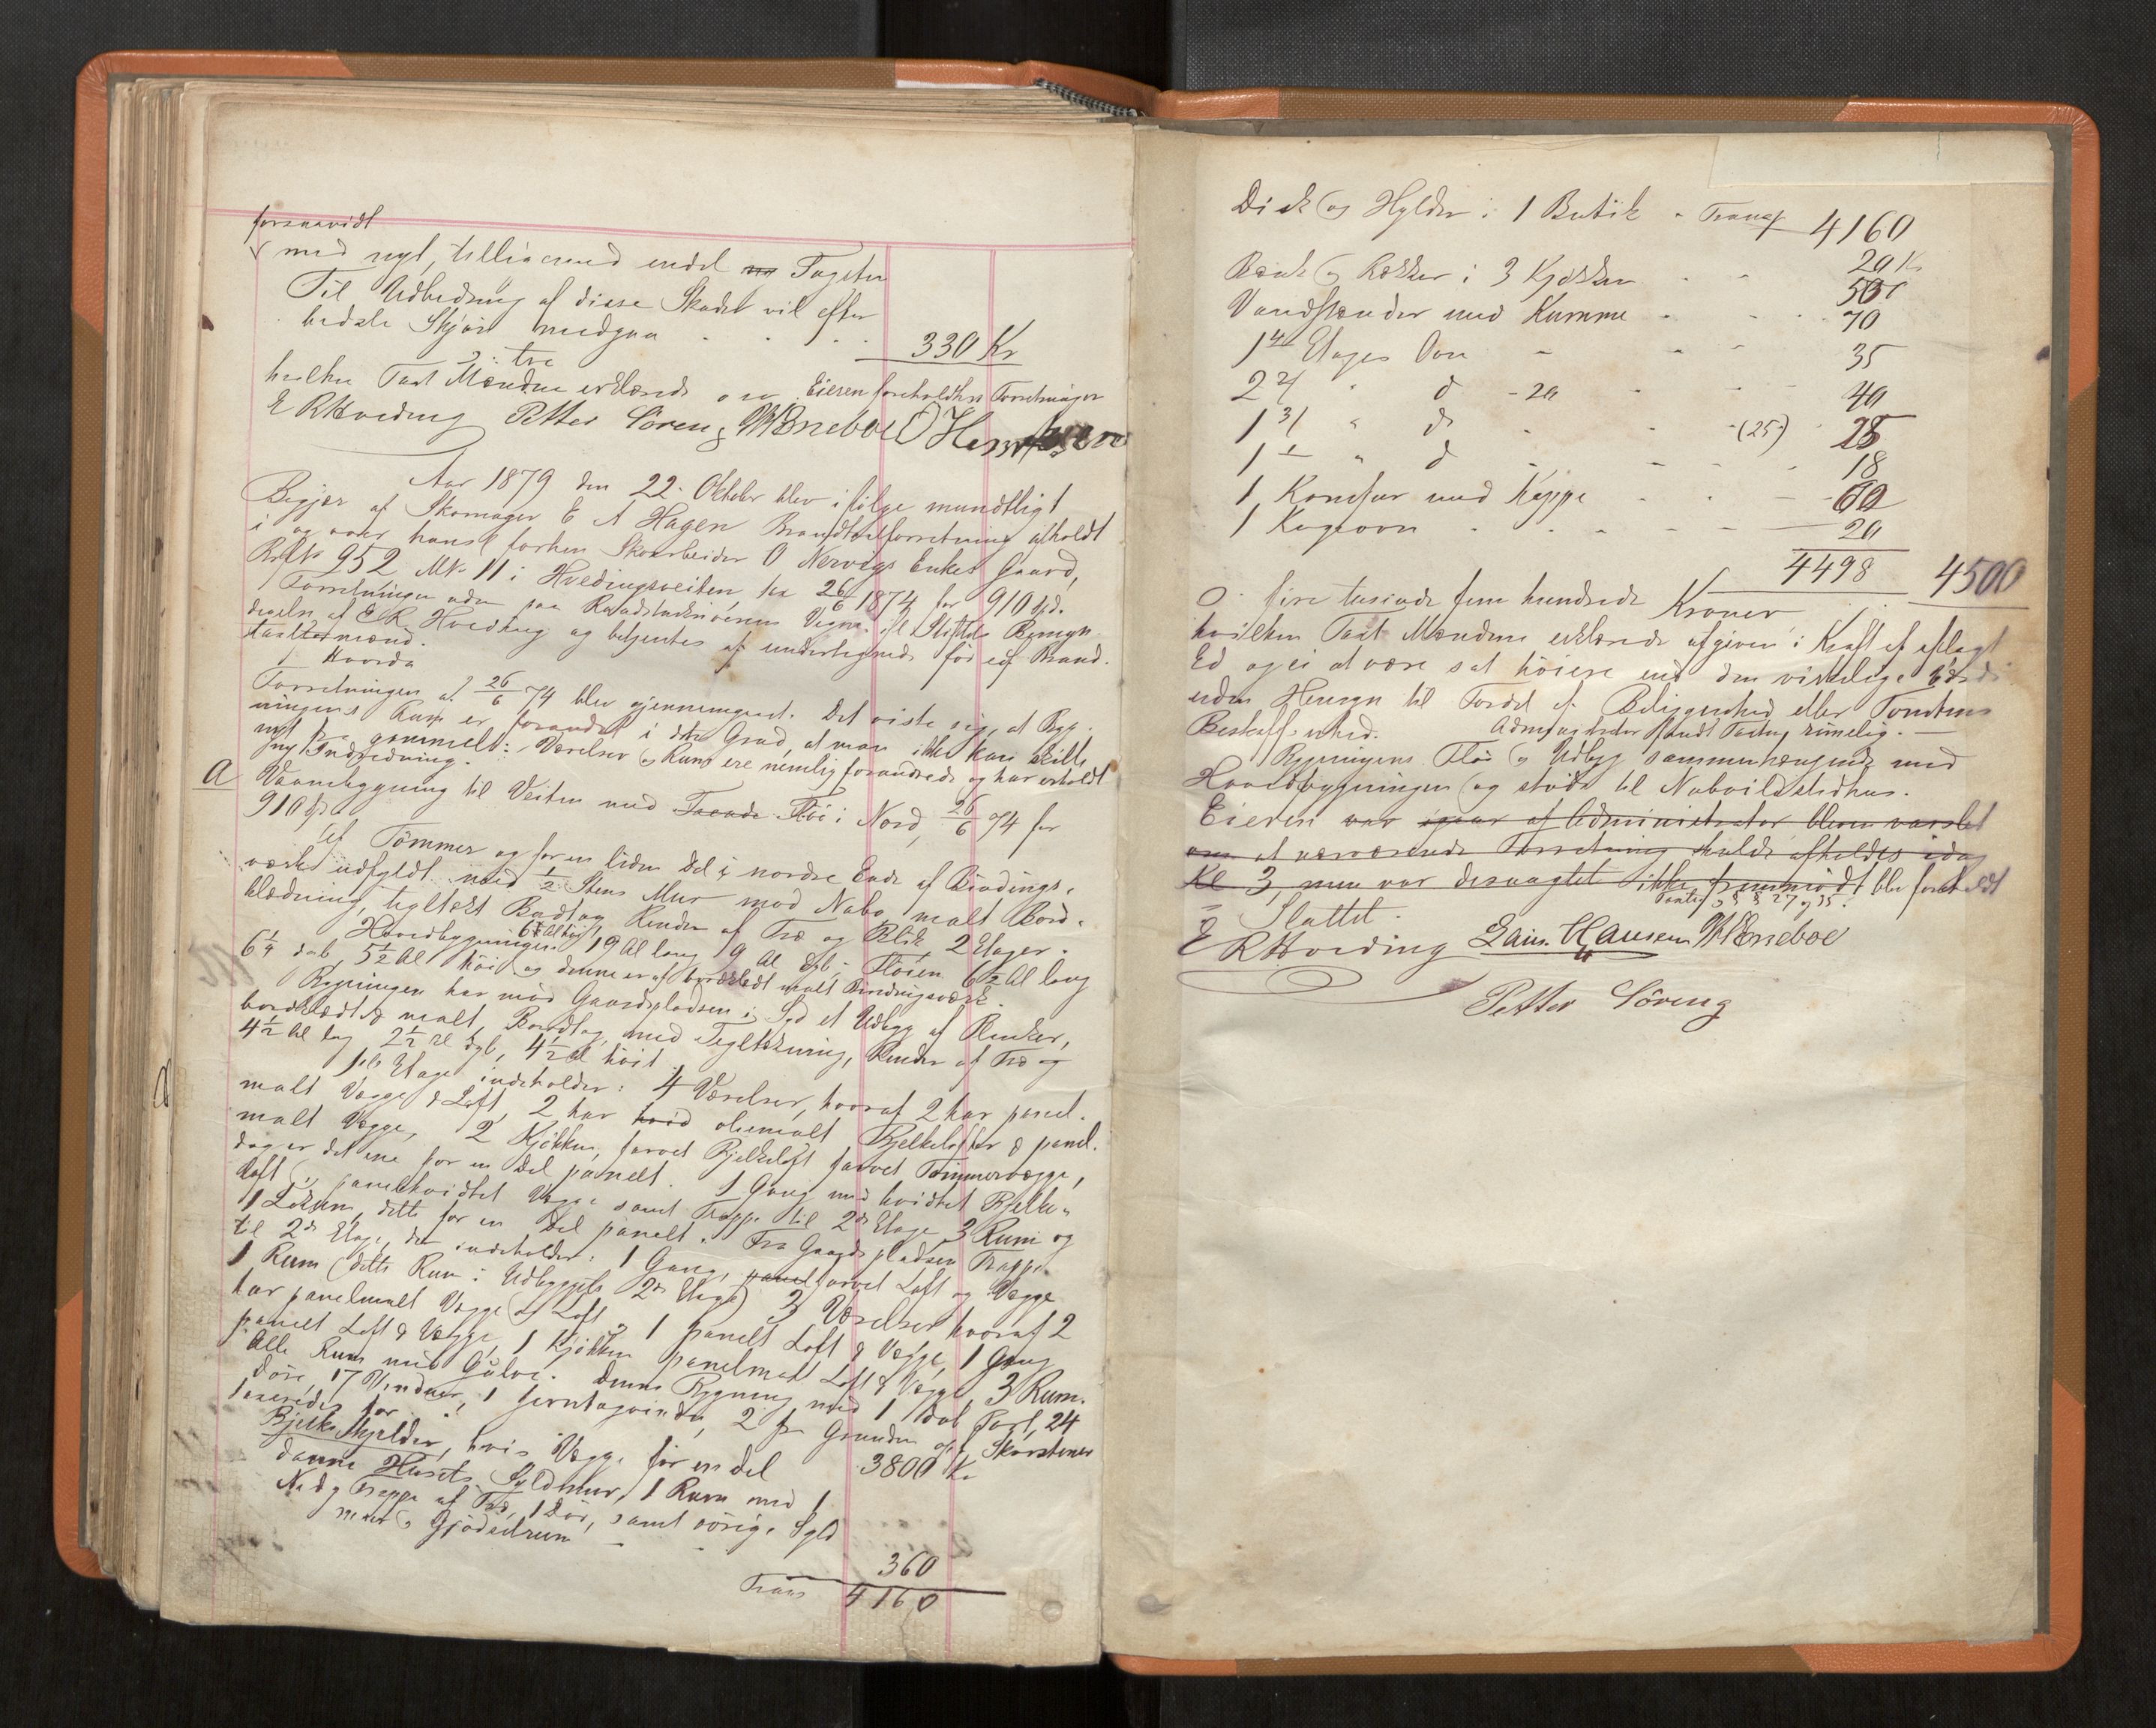 forsaavidt
med nyt, tilligemed endel Tagsten
Til Udbedring af disse Skader vil efter
bedste Skjøn medgaa . . . 330 Kr
hvilke Taxt Mændene erklærede o s v. Eieren foreholdtes Forretningen
E R Hveding Petter Söreng W Ørneboe O Henriksen
Aar 1879 den 22. Oktober blev ifölge mundtligt
Begjær af Skomager E A Hagen Brandtaxtforretning afholdt
i og over hans forhen Skoarbeider O Nervigs Enkes Gaard,
Rolfs 952 Mk 11 i Hvedingsveiten fra 26/6 1874 for 910 Spd.
Forretningen uden paa Raadstueskriverens Vegne ifl Stiftets Bemyn
digelse af E R. Hveding og betjentes af undertegnede före edf Brand.
taxtmænd.
Forretningen af 26/6 74 blev gjennemgaaet. Det viste sig, at Byg-
ningens Rum er forandret i den Grad, at man ikke kan skille
nyt fra gammelt: Værelser og Rum ere nemlig forandrede og har erholdt
ny Indredning.
A Vaanebygning til Veiten med Flöi i Nord, 26/6 74 for
910 Spd
Af Tömmer og for en liden Del i nordre Ende af Bindings-
værk udfyldt med 1/2 Stens Mur mod Nabo, malt Bord-
klædning, tegltækt Bordtag, Render af Træ og Blik, 2 Etager.
Hovedbygningen 19 Al lang 9 Al dyb, Flöien 6 1/2 Al lang
6 1/4 dyb, 5 1/2 Al höi og denne er af bordklædt malt Bindingsværk.
Bygningen har mod Gaardspladsen i Syd et Udbyg af Planker,
bordklædt & malt, Bordtag med Tegltækning, Render af Træ og
4 1/2 Al lang 2 1/2 Al dyb, 4 1/2 Al höit
1ste Etage indeholder: 4 Værelser, hvoraf 2 har panel-
malt Vægge & Loft, 2 har oliemalt Bjelkelofter & panel-
malt Vægge, 2 Kjökken, farvet Bjelkeloft farvet Tømmervægge,
dog er det ene for en Del panelt. 1 Gang med hvidtet Bjelke-
loft, panelhvidtet Vægge samt Trappe til 2den Etage, 3 Rum og
1 Lokum, dette for en Del panelt. Fra Gaardspladsen Trappe
til 2den Etage, der indeholder: 1 Gang, farvet Loft og Vægge
1 Rum (dette Rum i Udbyggets 2den Etage) 3 Værelser hvoraf 2
har panelmalt Vægge og Loft & 1 panelt Loft & Vægge, 1 Gang
panelt Loft & Vægge, 1 Kjökken panelmalt Loft & Vægge, 3 Rum.
Alle Rum med Gulve. Denne Bygning med 1 dob Port, 24
Döre, 17 Vinduer, 1 Jerntagvindu, 2 fra Grunden opf Skorstene
taxeredes for . . 3800 Kr
Bjelkekjelder, hvis Vægge for en del
danne Husets Syldmur, 1 Rum med 1
Nedg Trappe af Træ, 1 Dör, samt övrige Syld
murer og Gjödselrum - - 360
Trans 4160
Disk og Hylder i 1 Butik - Transp 4160
20 Kr
Bænk og Rækker i 3 Kjøkken - - 50
Vandstænder med Kumme - - - 70
1 4 Etages Ovn - - - 35
2 2/ " d - 20 - - 40
1 3/ " d - - - (25) 25
1 1 " d - - - 18
1 Komfur med Kappe - - - 60
1 Kogeovn - - - - 20
4498 4500
fire tusinde fem hundrede Kroner
hvilken Taxt Mændene erklærede afgiven i Kraft af aflagt
Ed og ei at være sat höiere end den virkelige Værdi
uden Hensyn til Fordel af Beliggenhed eller Tomtens
Beskaffenhed. Administrator fandt Taxten rimelig. -
Bygningens Flöi og Udbyg sammenhængende med
Hovedbygningen og støder til Nabovildstedhus.
Eieren var igaar af Administrator bleven varslet
om at nærværende Forretning skulde afholdes idag
Kl 3, men var desuagtet ikke fremmødt blev foreholdt
§§ 27 og 35.
Sluttet.
E R Hveding Lars. Hansen W Ørneboe
Petter Söreng